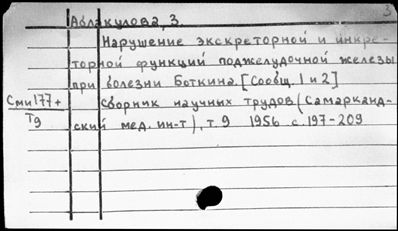 3
Аблакулова, З.
Нарушение экскреторной и инкре-
торной функций поджелудочной железы
при болезни Боткина. [Сообщ. 1 и 2]
Сми177+
Т9
Сборник научных трудов (Самарканд-
ский мед. ин-т), т. 9 1956 с. 197-209